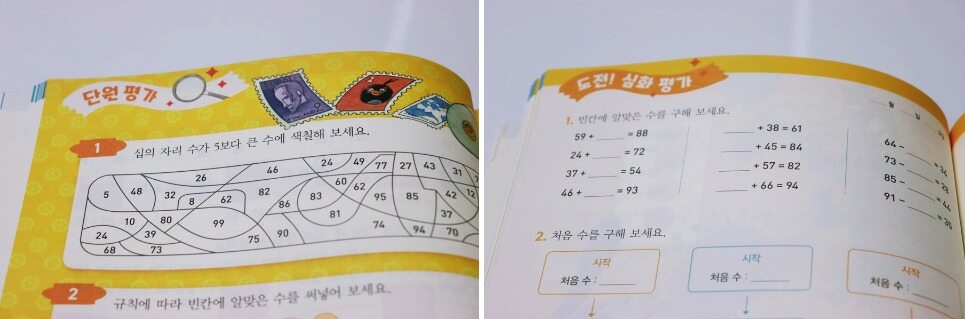 단원 평가
1 십의 자리 수가 5보다 큰 수에 색칠해 보세요.
5 48 32 26 46 24 49 77 27 43 31
8 62 82 86 83 60 62 95 85 42 12
10 80 99 81 74 37
24 39 75 90 94 70
68 73
2 규칙에 따라 빈칸에 알맞은 수를 써넣어 보세요.
도전! 심화 평가
월
1. 빈칸에 알맞은 수를 구해 보세요.
59 + ____ = 88
24 + ____ = 72
37 + ____ = 54
46 + ____ = 93
____ + 38 = 61
____ + 45 = 84
____ + 57 = 82
____ + 66 = 94
64 - ____ = 36
73 - ____ = 28
85 - ____ = 46
91 - ____ = 35
2. 처음 수를 구해 보세요.
시작
처음 수 : ____
시작
처음 수 : ____
시작
처음 수 : ____